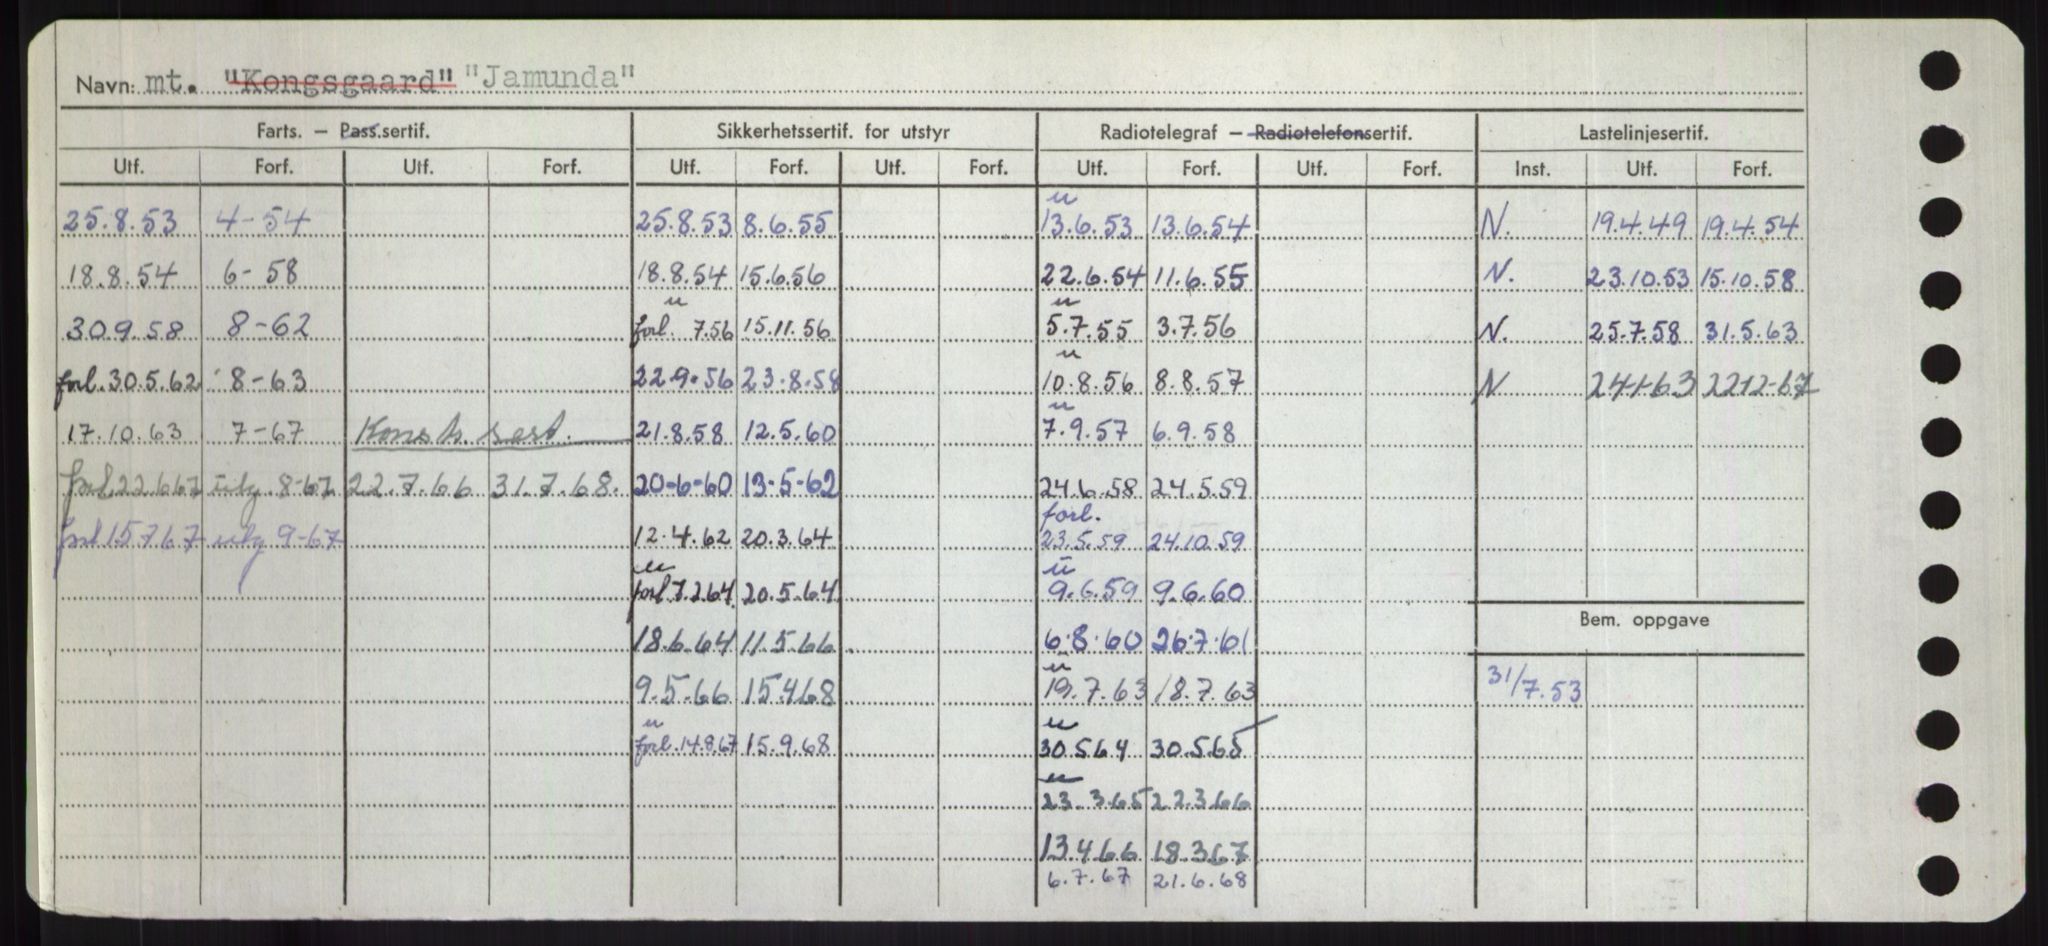 Navn: mt. "Kongsgaard" "Jamunda"
Farts. — Pass.sertif. Sikkerhetssertif. for utstyr Radiotelegraf — Radiotelefonsertif. Lastelinjesertif.
Utf. Forf. Utf. Forf. Utf. Forf. Utf. Forf. Utf. Forf. Utf. Forf. Inst. Utf. Forf.
u
25.8.53 4-54 25.8.53 8.6.55 13.6.53 13.6.54 N. 19.4.49 19.4.54
18.8.54 6-58 18.8.54 15.6.56 22.6.54 11.6.55 N. 23.10.53 15.10.58
u u
30.9.58 8-62 forl. 7.56 15.11.56 5.7.55 3.7.56 N. 25.7.58 31.5.63
u
forl.30.5.62 8-63 22.9.56 23.8.58 10.8.56 8.8.57 N 24-1-63 22-12-67
u
17.10.63 7-67 Konstr. sert. 21.8.58 12.5.60 7.9.57 6.9.58
forl.22.6.67 utg 8-67 22.7.66 31.7.68. 20-6-60 13-5-62 24.6.58 24.5.59
forl.
forl 15.7.67 utg 9-67 12.4.62 20.3.64 23.5.59 24.10.59
u u
forl 7.2.64 20.5.64 9.6.59 9.6.60
Bem. oppgave
18.6.64 11.5.66 6.8.60 26.7.61
u
9.5.66 15.4.68 19.7.63 18.7.63 31/7.53
u u
forl.14.8.67 15.9.68 30.5.64 30.5.65
u
23.3.65 22.3.66
13.4.66 18.3.67
6.7.67 21.6.68